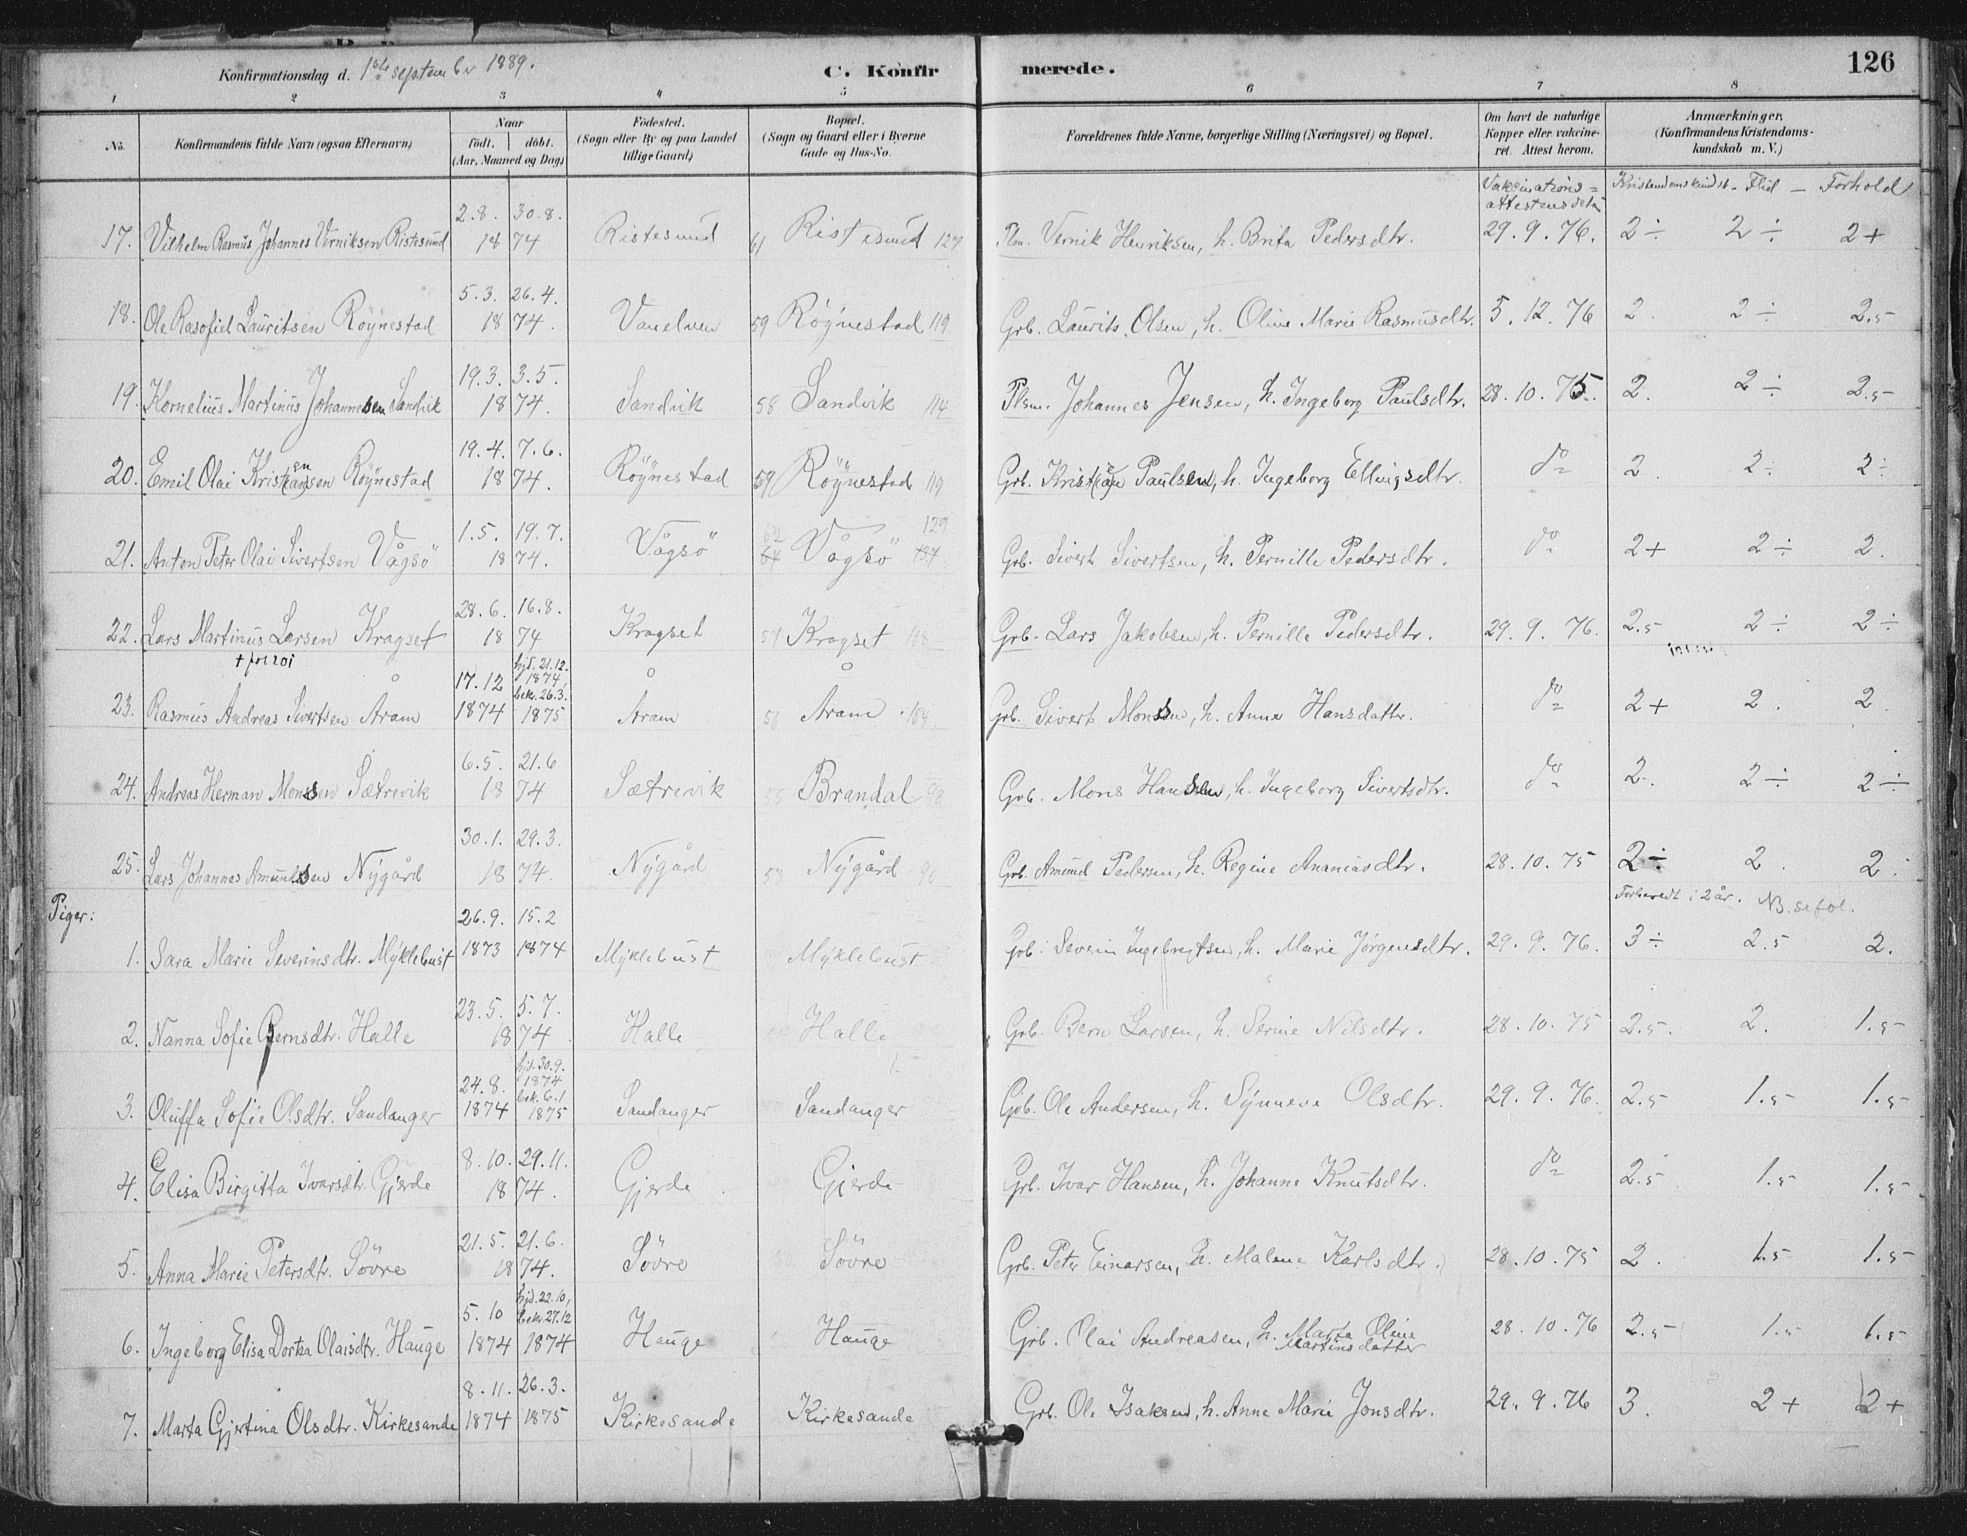 Konfirmationsdag d. 1ste september 1889. C. Konfirmerede. 126
1 2 3 4 5 6 7 8
No. Konfirmandens fulde Navn (ogsaa Efternavn) Naar födt. döbt. (Aar, Maaned og Dag) Födested. (Sogn eller By og paa Landet tillige Gaard) Bopæl. (Sogn og Gaard eller i Byerne Gade og Hus-No. Forældrenes fulde Navne, borgerlige Stilling (Næringsvei) og Bopæl. Om havt de naturlige Kopper eller vakcineret. Attest herom. Anmærkninger. (Konfirmandens Kristendomskundskab m. V.)
Vakcinations= attestens data Kristendomskundsk. - Flid - Forhold
17. Vilhelm Rasmus Johannes Verniksen Ristesund 2.8. 30.8. 1874 Ristesund 61 Ristesund 127 Plm. Vernik Henriksen, h. Brita Pedersdtr. 29.9.76. 2÷ 2÷ 2+
18. Ole Rasofiel Lauritsen Röynestad 5.3. 26.4. 1874. Vanelven 59 Röynestad 119 Grb. Laurits Olsen, h. Oline Marie Rasmusdtr. 5.12.76 2. 2÷ 2.5
19. Kornelius Martinus Johannessen Sandvik 19.3. 3.5. 1874. Sandvik 58 Sandvik 114 Plsm. Johannes Jensen, h. Ingeborg Paulsdtr. 28.10.75. 2. 2÷ 2.5
20. Emil Olai Kristiansen Röynestad 19.4. 7.6. 1874. Röynestad 59 Röynestad 119 Grb. Kristian Paulsen, h. Ingeborg Ellingsdtr. do 2. 2÷ 2÷
21. Anton Peter Olai Sivertsen Vågsö 1.5. 19.7. 1874. Vågsö 62 64 Vågsö 129 134 Grb. Sivert Sivertsen, h. Pernille Pedersdtr. do 2+ 2÷ 2.
22. Lars Martinus Larsen Kragset 28.6. 16.8. 1874 Kragset 57 Kragset Grb. Lars Jakobsen, h. Pernille Pedersdtr. 29.9.76. 2.5 2÷ 2÷
23. Rasmus Andreas Sivertsen Åram 17.12 1874 hjd. 21.12. 1874, bek. 26.3. 1875 Åram 56 Åram 104 Grb. Sivert Monssen, h. Anne Hansdatter. do 2+ 2. 2.
24. Andreas Herman Monssen Sætrevik 6.5. 21.6 1874 Sætrevik 55 Brandal 98 Grb. Mons Hanssen, h. Ingeborg Sivertsdtr. do 2. 2÷ 2÷
25. Lars Johannes Amundsen Nýgård 30.1. 29.3. 1874. Nýgård 53 Nýgård 90 Grb. Amund Pedersen, h. Regine Ananiasdtr. 28.10.75 2÷ 2. 2.
Piger:
Forberedt i 2 år. NB.
1. Sara Marie Severinsdtr. Mýklebust 26.9. 15.2 1873 1874 Mýklebust Mýklebust Grb. Severin Ingebregtsen, h. Marie Jörgensdtr. 29.9.76. 3÷ 2.5 2.
2. Nanna Sofie Bernsdtr. Halle 23.5. 5.7. 1874 Halle Halle Grb. Bern Larsen, h. Serine Nilsdtr. 28.10.75 2.5. 2. 1.5
3. Oluffa Sofie Olsdtr. Sandanger 24.8. 1874 hjd. 30.9. 1874 bek. 6.1 1875 Sandanger Sandanger Grb. Ole Andersen, h. Sýnneve Olsdtr. 29.9.76. 2.5 1.5 1.5
4. Elisa Birgitta Ivarsdtr. Gjerde 8.10. 29.11. 1874. Gjerde Gjerde Grb. Ivar Hansen, h. Johanne Knutsdtr. do 2.5 1.5 1.5
5. Anna Marie Petersdtr. Sövre 21.5. 21.6. 1874. Sövre Sövre Grb. Peter Einarsen, h. Malene Karlsdtr. 28.10.75 2. 1.5 1.5
6. Ingeborg Elisa Dortea Olaisdtr. Hauge 5.10 1874 hjd. 22.10, bek. 27.12 1874 Hauge Hauge Grb. Olai Andreasen, h. Marta Oline Martinsdatter 28.10.76 2.5 1.5 1.5
7. Marta Gjertina Olsdtr. Kirkesande 8.11. 26.3. 1874 1875 Kirkesande Kirkesande Grb. Ole Isaksen, h. Anne Marie Jonsdtr. 29.9.76 3. 2+ 2+